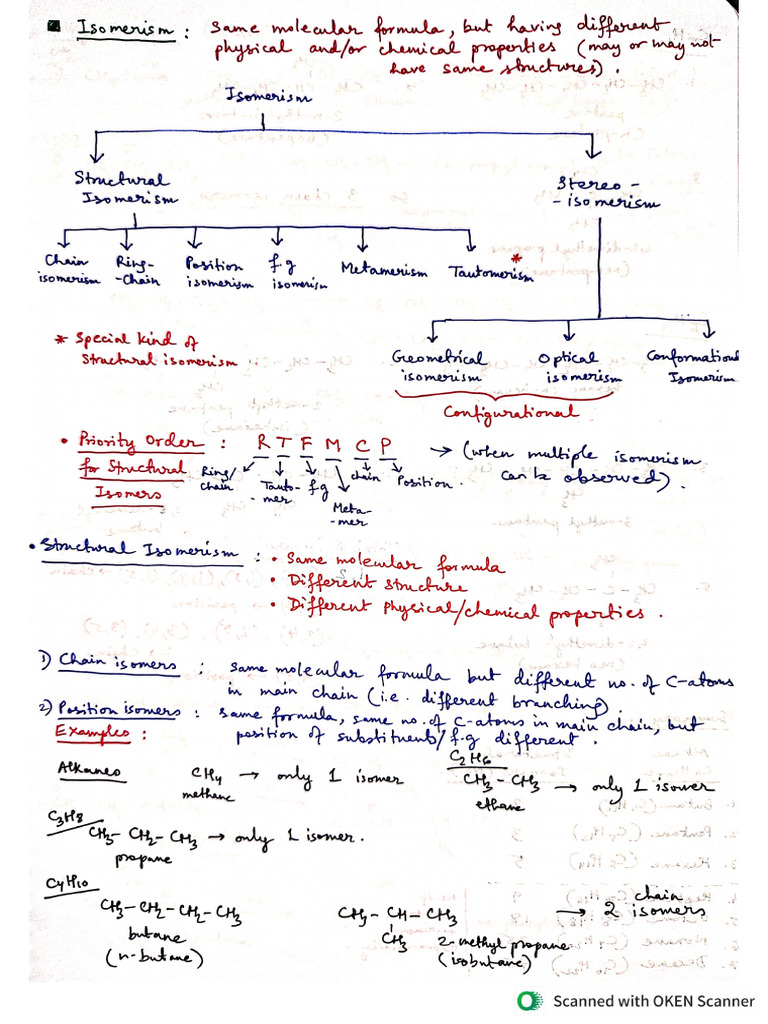 Isomerism : Same molecular formula, but having different
physical and/or chemical properties (may or may not
have same structures).
Isomerism
Structural
Isomerism
Stereo -
- isomerism
Chain
isomerism
Ring-
-Chain
Position
isomerism
f.g
isomerism
Metamerism
Tautomerism
*
* Special kind of
Structural isomerism
Geometrical
isomerism
Optical
isomerism
Conformational
Isomerism
Configurational
• Priority Order :
for Structural
Isomers
R T F M C P → (when multiple isomerism
can be observed).
Ring/
chain
Tauto-
mer
f.g
Meta-
mer
chain
Position.
• Structural Isomerism : • Same molecular formula
• Different structure
• Different Physical/chemical properties.
1) Chain isomers : same molecular formula but different no. of C-atoms
in main chain (i.e. different branching).
2) Position isomers : same formula, same no. of C-atoms in main chain, but
position of substituents/f.g different.
Examples :
Alkanes
CH4 → only 1 isomer
methane
C2H6
CH3 – CH3 → only 1 isomer
ethane
C3H8
CH3 – CH2 – CH3 → only 1 isomer.
propane
C4H10
CH3 – CH2 – CH2 – CH3
butane
(n-butane)
CH3 – CH – CH3
CH3
2-methyl propane
(isobutane)
→ 2 chain
isomers
Scanned with OKEN Scanner